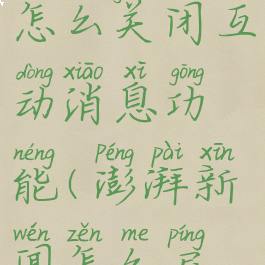 怎么关闭互
dòng xiāo xī gōng
动消息功
néng ( Péng pài xīn
能(澎湃新
wén zěn me píng
闻怎么屏